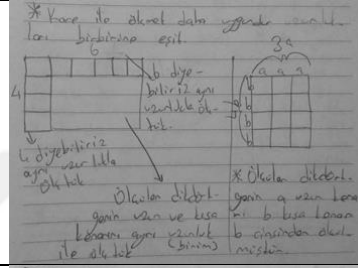 * Kare ile ölçmek daha uygundur
ları birbirine eşit.
6
4
b diye-
biliriz aynı
uzunlukla ölç-
tük.
4 diyebiliriz
aynı uzunlukla
ölçtük
Ölçülen dikdört-
genin uzun ve kısa
kenarını aynı uzunluk
(birim)
ile ölçtük
3a
a a a
b
b
b
b
* Ölçülen dikdört-
genin a uzun kena-
rı b kısa kenarı
b cinsinden